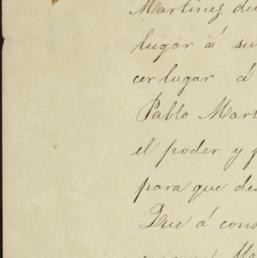 Martinez de
lugar á su
cer lugar á
Pablo Mart
el poder y q
para que de
Que á cons